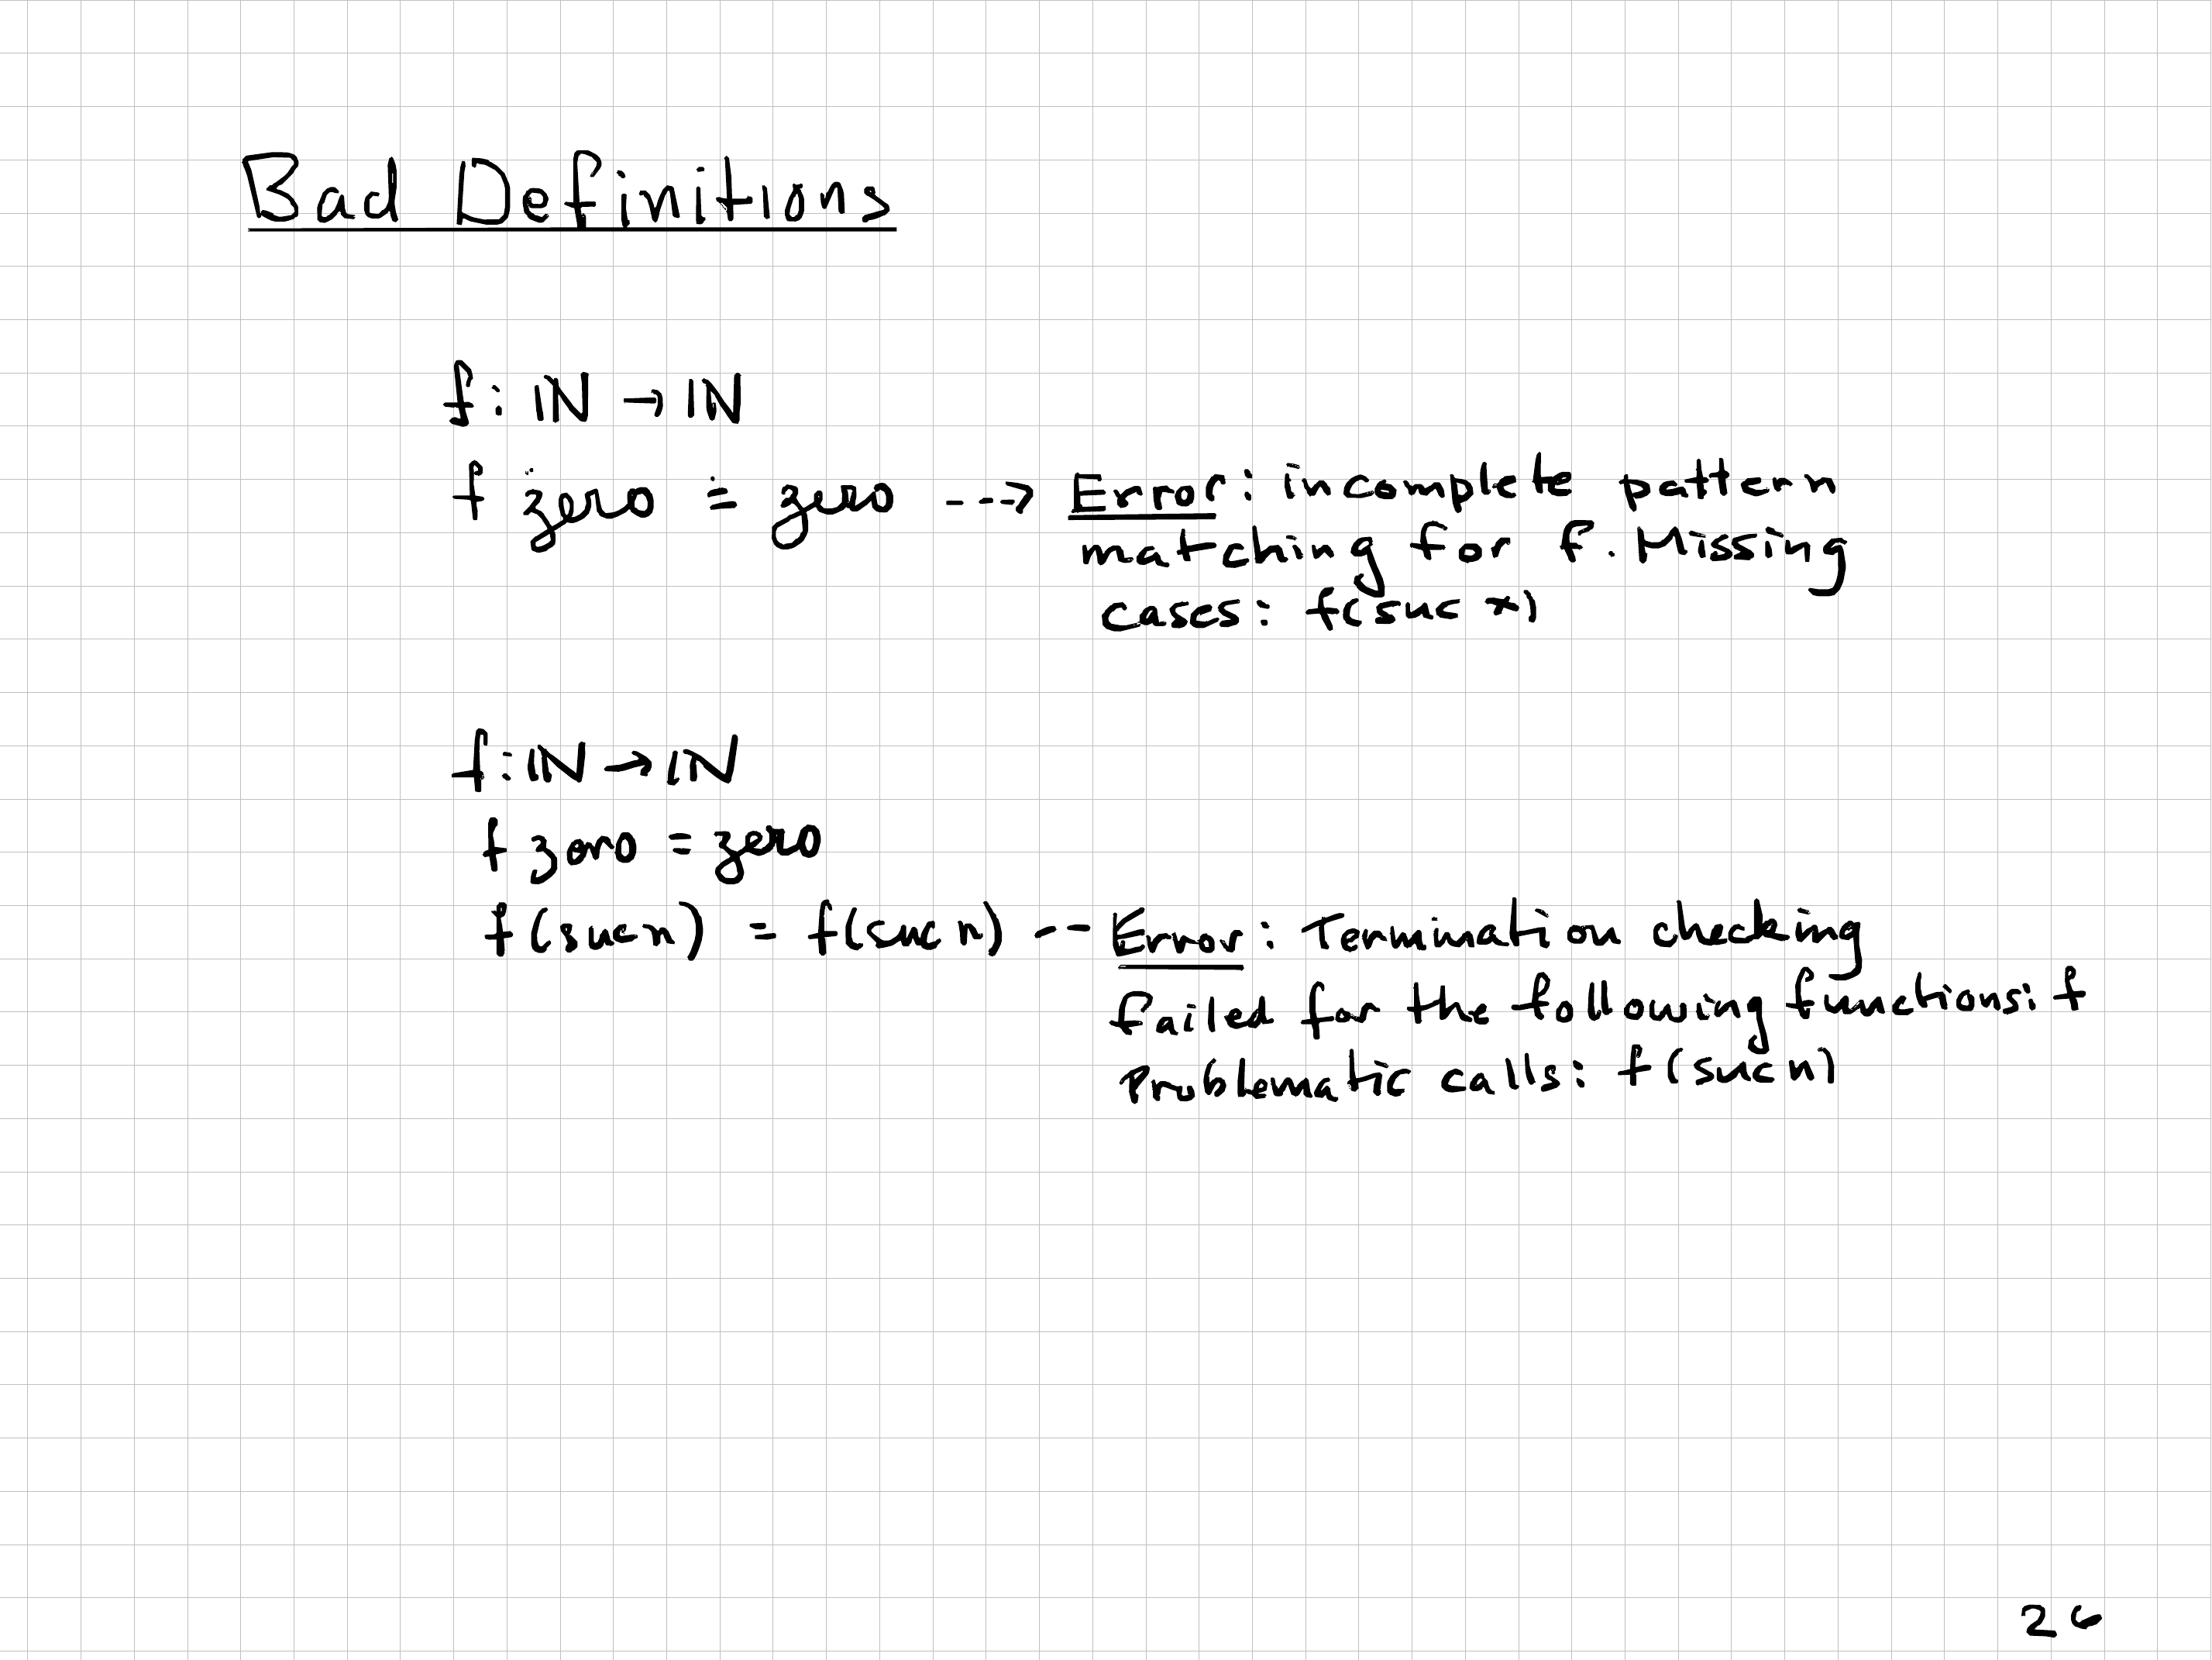 Bad Definitions
f: ℕ → ℕ
f zero = zero ---> Error: incomplete pattern
matching for f. Missing
cases: f(suc x)
f: ℕ → ℕ
f zero = zero
f(suc n) = f(suc n) -- Error: Termination checking
failed for the following functions: f
Problematic calls: f(suc n)
26